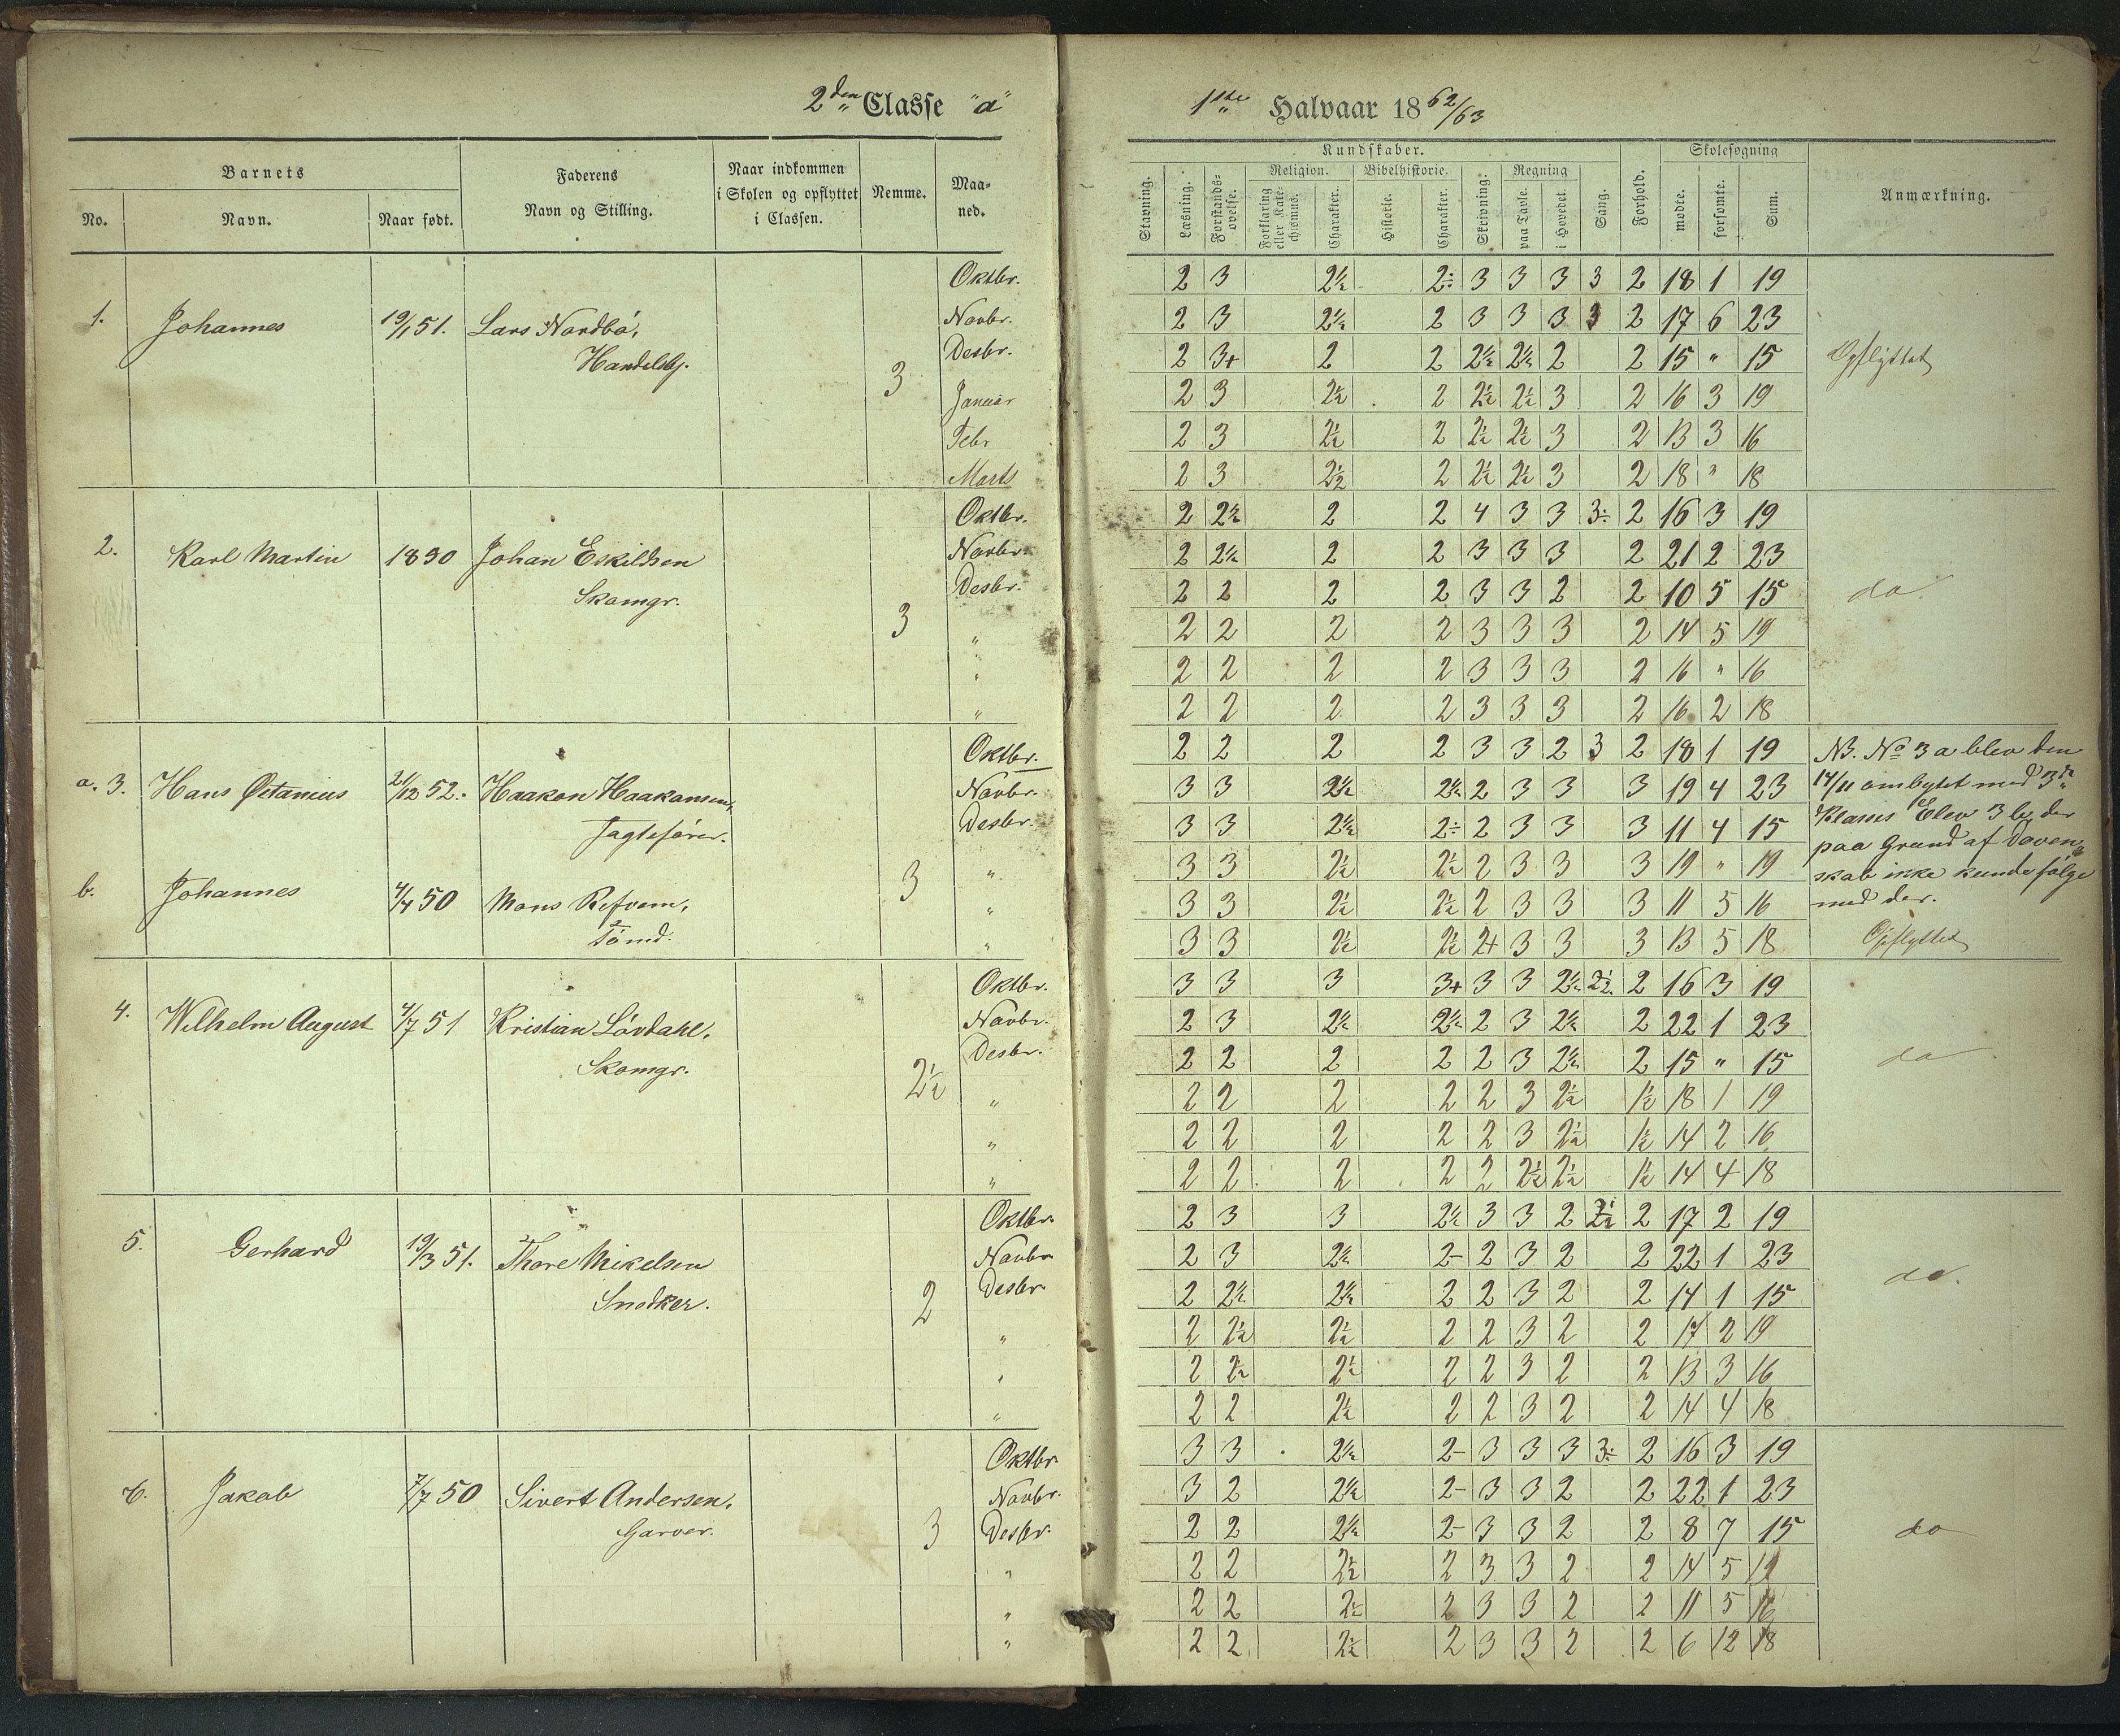 2
2den Classe "a"
1ste Halvaar 1862/63
Barnets
Faderens
Navn og Stilling.
Naar indkommen
i Skolen og opflyttet
i Classen.
Nemme.
Maa=
ned.
No.
Navn.
Naar født.
Kundskaber.
Skolesøgning
Stavning.
Læsning.
Forstands=
øvelse.
Religion.
Forklaring
eller Kate=
chismus.
Charakter.
Bibelhistorie.
Historie.
Charakter.
Skrivning.
Regning
paa Tavle.
i Hovedet.
Sang.
Forhold.
mødte.
forsømte.
Sum.
Anmærkning.
Oktbr. 2 3 2½ 2÷ 3 3 3 3 2 18 1 19
1. Johannes 19/1 51. Lars Nordbö, Novbr. 2 3 2½ 2 3 3 3 3 2 17 6 23
Handelsbj. 3 Desbr. 2 3+ 2 2 2½ 2½ 2 2 15 " 15 Opflyttet
Januar 2 3 2½ 2 2½ 2½ 3 2 16 3 19
Febr 2 3 2½ 2 2½ 2½ 3 2 13 3 16
Marts 2 3 2½ 2 2½ 2½ 3 2 18 " 18
Oktbr. 2 2½ 2 2 4 3 3 3÷ 2 16 3 19
2. Karl Martin 1850 Johan Eskildsen Novbr. 2 2½ 2 2 3 3 3 2 21 2 23
Skomgr. 3 Desbr. 2 2 2 2 3 3 2 2 10 5 15 do.
" 2 2 2 2 3 3 3 2 14 5 19
" 2 2 2 2 3 3 3 2 16 " 16
" 2 2 2 2 3 3 3 2 16 2 18
Oktbr. 2 2 2 2 3 3 2 3 2 18 1 19 NB. No 3 a blev den
a. 3. Hans Octanius 21/12 52. Haakon Haakonsen, Novbr. 3 3 2½ 2½ 2 3 3 3 19 4 23 14/11 ombyttet med 3die
Jagtefører. Desbr. 3 3 2½ 2÷ 2 3 3 3 11 4 15 Klasses Elev 3 b, der
3 " 3 3 2½ 2½ 2 3 3 3 19 " 19 paa Grund af Doven=
b. Johannes 4/4 50 Mons Refvem, " 3 3 2½ 2½ 2 3 3 3 11 5 16 skab ikke kunde følge
Tömd. " 3 3 2½ 2½ 2+ 3 3 3 13 5 18 med der.
Opflyttet
Oktbr. 3 3 3 3+ 3 3 2½ 2½ 2 16 3 19
4. Wilhelm August 4/7 51 Kristian Lövdahl, Novbr. 2 3 2½ 2½ 2 3 2½ 2 22 1 23
Skomgr. 2½ Desbr. 2 2 2 2 2 3 2½ 2 15 " 15 do
" 2 2 2 2 2 3 2½ 1½ 18 1 19
" 2 2 2 2 2 3 2½ 1½ 14 2 16
" 2 2 2 2 2 2½ 2½ 1½ 14 4 18
Oktbr. 2 3 3 2½ 3 3 2 2½ 2 17 2 19
5. Gerhard 19/3 51. Thore Mikelsen Novbr 2 3 2½ 2- 2 3 2 2 22 1 23
Snedker. 2 Desbr. 2 2½ 2½ 2 2 3 2 2 14 1 15 do.
" 2 2½ 2½ 2 2 3 2 2 17 2 19
" 2 2½ 2½ 2 2 3 2 2 13 3 16
" 2 2 2½ 2 2 3 2 2 14 4 18
Oktbr 3 3 2½ 2- 3 3 3 3÷ 2 16 3 19
6. Jakob 7/7 50 Sivert Andersen, Novbr. 3 2 2½ 2- 3 3 2 2 22 1 23
Garver. 3 Desbr. 2 2 2½ 2- 3 3 2 2 8 7 15 do
" 2 2 2½ 2 3 3 2 2 14 5 19
" 2 2 2½ 2 3 3 2 2 11 5 16
" 2 2 2½ 2 3 3 2 2 6 12 18